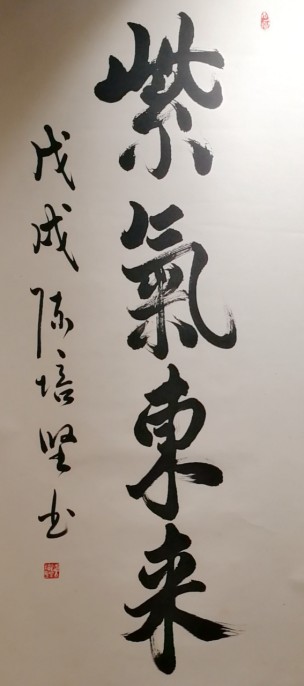 紫氣東来
戊戌陈培坚书